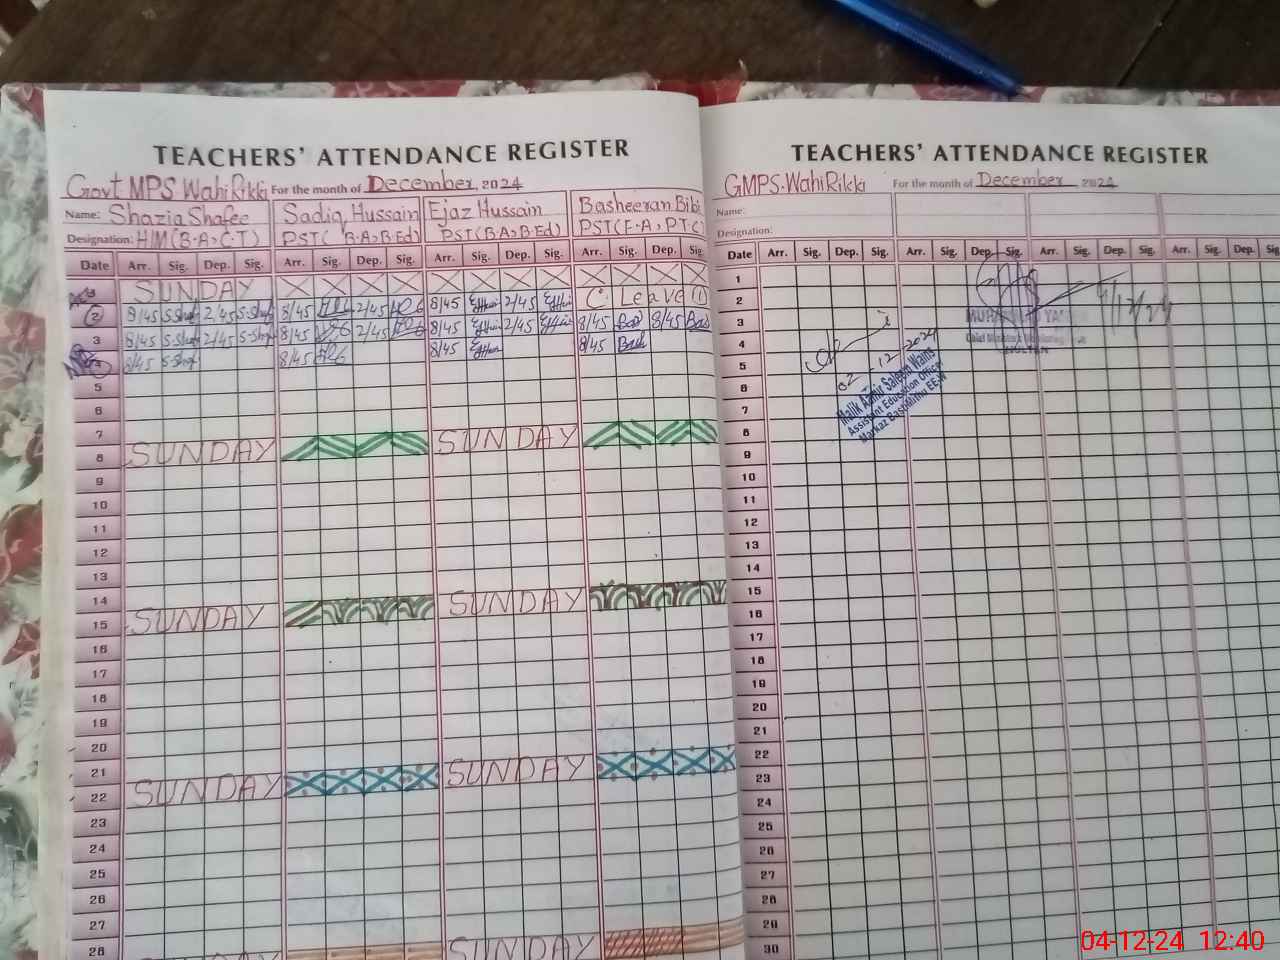 TEACHERS' ATTENDANCE REGISTER
Govt MPS. WahiRikki For the month of December, 2024
Name: Shazia Shafee Sadiq Hussain Ejaz Hussain Basheeran Bibi
Designation: H/M(B.A,C.T) PST( B.A,B.Ed) PST(B.A,B.Ed) PST(F.A,PTC)
Date Arr. Sig. Dep. Sig. Arr. Sig. Dep. Sig. Arr. Sig. Dep. Sig. Arr. Sig. Dep. Sig.
SUNDAY
2 8/45 S-Shaf 2/45 S-Shaf 8/45 2/45 8/45 2/45 C. Leave (1)
3 8/45 S-Shaf 2/45 S-Shaf 8/45 2/45 8/45 2/45 8/45 8/45
8/45 S-Shaf 8/45 8/45 8/45
5
6
7
8 SUNDAY SUNDAY
9
10
11
12
13
14
15 SUNDAY SUNDAY
16
17
18
19
20
21
22 SUNDAY SUNDAY
23
24
25
26
27
28 SUNDAY
TEACHERS' ATTENDANCE REGISTER
GMPS. WahiRikki For the month of December 2024
Name:
Designation:
Date Arr. Sig. Dep. Sig. Arr. Sig. Dep. Sig. Arr. Sig. Dep. Sig. Arr. Sig. Dep.
1
2
3
4
5
6
7
8
9
10
11
12
13
14
15
16
17
18
19
20
21
22
23
24
25
26
27
28
29
30
4/12/24
02-12-2024
Malik Aamir Saleem Wains
Assistant Education Officer
Markaz
04-12-24 12:40